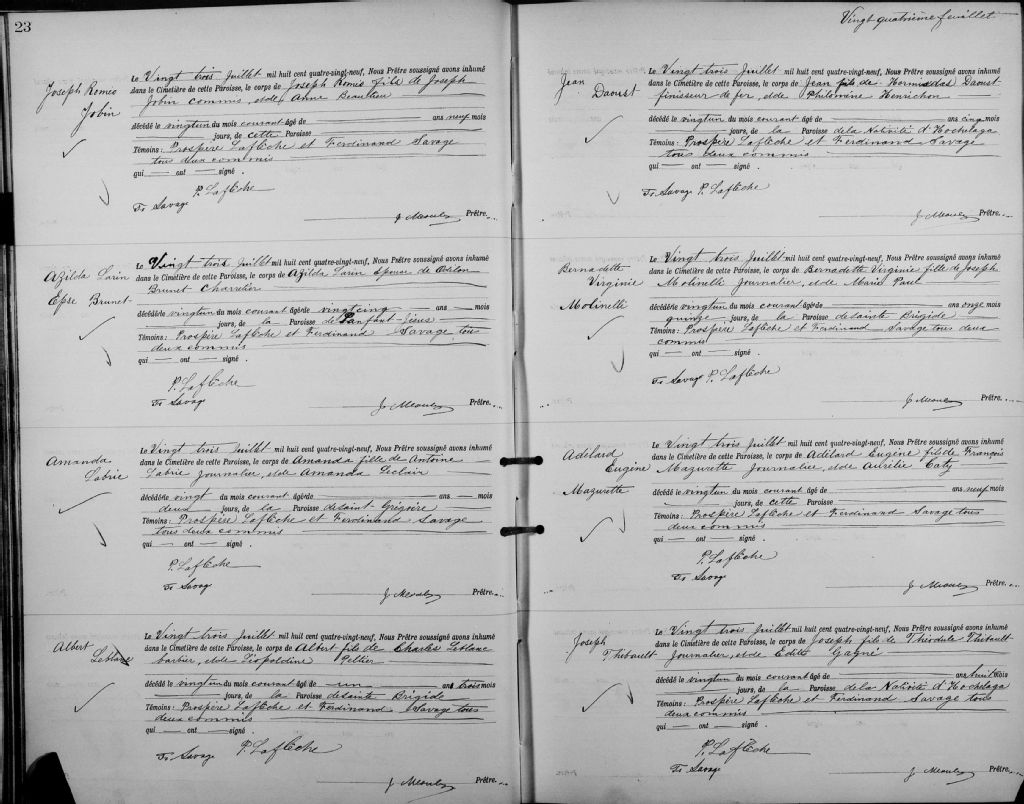 23
Joseph Roméo
Jobin
Le Vingt trois Juillet mil huit cent quatre-vingt-neuf, Nous Prêtre soussigné avons inhumé
dans le Cimetière de cette Paroisse, le corps de Joseph Roméo fils de Joseph
Jobin commis, et de Anne Beaulieu
décédé le vingtun du mois courant âgé de ans neuf mois
jours, de cette Paroisse
Témoins : Prospère Laflèche et Ferdinand Savage
tous deux commis
qui — ont — signé .
P. Laflèche
Fd Savage
Prêtre.
Azilda Larin
Epse Brunet
Le Vingt trois Juillet mil huit cent quatre-vingt-neuf, Nous Prêtre soussigné avons inhumé
dans le Cimetière de cette Paroisse, le corps de Azilda Larin épouse de
Brunet Charretier
décédée le vingtun du mois courant âgée de vingt cinq ans — mois
jours, de la Paroisse de L'enfant-Jésus
Témoins : Prospère Laflèche et Ferdinand Savage tous
deux commis
qui — ont — signé .
P. Laflèche
Fd Savage
Prêtre.
Amanda
Labrie
Le Vingt trois Juillet mil huit cent quatre-vingt-neuf, Nous Prêtre soussigné avons inhumé
dans le Cimetière de cette Paroisse, le corps de Amanda fille de Antoine
Labrie Journalier, et de Amanda Leclair
décédée le vingt du mois courant âgée de ans — mois
deux jours, de la Paroisse de Saint Grégoire
Témoins : Prospère Laflèche et Ferdinand Savage
tous deux commis
qui — ont — signé .
P. Laflèche
Fd Savage
Prêtre.
Albert
Leblanc
Le Vingt trois Juillet mil huit cent quatre-vingt-neuf, Nous Prêtre soussigné avons inhumé
dans le Cimetière de cette Paroisse, le corps de Albert fils de Charles Leblanc
barbier, et de Léopoldine Peltier
décédé le vingtun du mois courant âgé de un an trois mois
jours, de la Paroisse de Sainte Brigide
Témoins : Prospère Laflèche et Ferdinand Savage tous
deux commis
qui — ont — signé .
Fd Savage P. Laflèche
Prêtre.
Vingt quatrième feuillet
Jean
Daoust
Le Vingt trois Juillet mil huit cent quatre-vingt-neuf, Nous Prêtre soussigné avons inhumé
dans le Cimetière de cette Paroisse, le corps de Jean fils de Hormisdas Daoust
finisseur de fer, et de Philomène Henrichon
décédé le vingtun du mois courant âgé de ans cinq mois
jours, de la Paroisse de la Nativité d'Hochelaga
Témoins : Prospère Laflèche et Ferdinand Savage
tous deux commis
qui — ont — signé .
Fd Savage P. Laflèche
Prêtre.
Bernadette
Virginie
Molinelli
Le Vingt trois Juillet mil huit cent quatre-vingt-neuf, Nous Prêtre soussigné avons inhumé
dans le Cimetière de cette Paroisse, le corps de Bernadette Virginie fille de Joseph
Molinelli Journalier, et de Marie Paul
décédée le vingtun du mois courant âgée de ans onze mois
quinze jours, de la Paroisse de Sainte Brigide
Témoins : Prospère Laflèche et Ferdinand Savage tous deux
commis
qui — ont — signé .
Fd Savage P. Laflèche
Prêtre.
Adélard
Eugène
Mazurette
Le Vingt trois Juillet mil huit cent quatre-vingt-neuf, Nous Prêtre soussigné avons inhumé
dans le Cimetière de cette Paroisse, le corps de Adélard Eugène fils de François
Mazurette Journalier, et de Aurélie Caty
décédé le vingtun du mois courant âgé de ans neuf mois
jours, de cette Paroisse
Témoins : Prospère Laflèche et Ferdinand Savage tous
deux commis
qui — ont — signé .
P. Laflèche
Fd Savage
Prêtre.
Joseph
Thibault
Le Vingt trois Juillet mil huit cent quatre-vingt-neuf, Nous Prêtre soussigné avons inhumé
dans le Cimetière de cette Paroisse, le corps de Joseph fils de Théodule Thibault
Journalier, et de Edite Gagné
décédé le vingtun du mois courant âgé de ans huit mois
jours, de la Paroisse de la Nativité d'Hochelaga
Témoins : Prospère Laflèche et Ferdinand Savage tous
deux commis
qui — ont — signé .
P. Laflèche
Fd Savage
Prêtre.